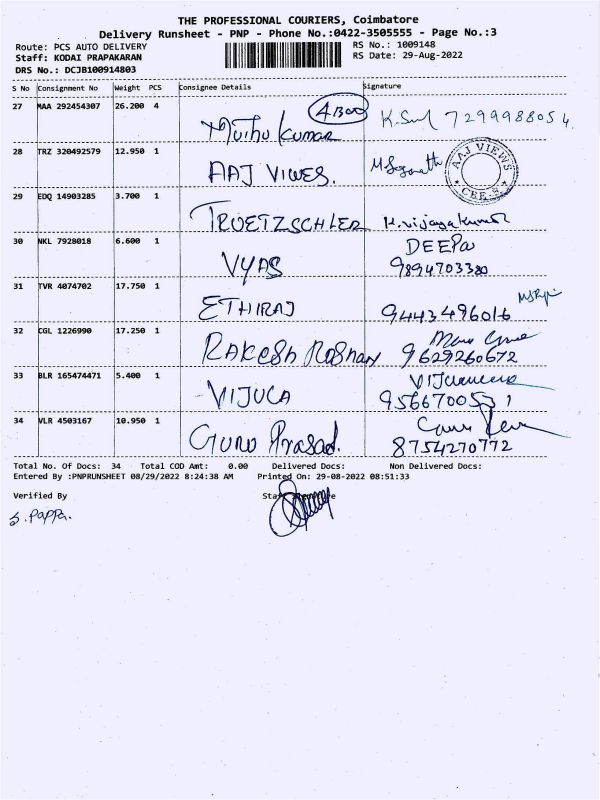 THE PROFESSIONAL COURIERS, Coimbatore
Delivery Runsheet - PNP - Phone No.:0422-3505555 - Page No.:3
Route: PCS AUTO DELIVERY RS No.: 1009148
Staff: KODAI PRAPAKARAN RS Date: 29-Aug-2022
DRS No.: DCJB100914803
S No Consignment No Weight PCS Consignee Details Signature
27 MAA 292454307 26.200 4 Muthu kumar 4 Box 7299988054
28 TRZ 320492579 12.950 1 AAJ VIWES. AAJ VIEWS CBE
29 EDQ 14903285 3.700 1 TRUETZSCHLER K.vijayakumar
30 NKL 7928018 6.600 1 VYAS DEEPa
9894703380
31 TVR 4074702 17.750 1 ETHIRAJ 9443496016
32 CGL 1226990 17.250 1 RAKESh ROShan 9629260672
33 BLR 165474471 5.400 1 VIJUCA
34 VLR 4503167 10.950 1 GURU Prasad. 8754270772
Total No. Of Docs: 34 Total COD Amt: 0.00 Delivered Docs: Non Delivered Docs:
Entered By :PNPRUNSHEET 08/29/2022 8:24:38 AM Printed On: 29-08-2022 08:51:33
Verified By
S. Pappa.